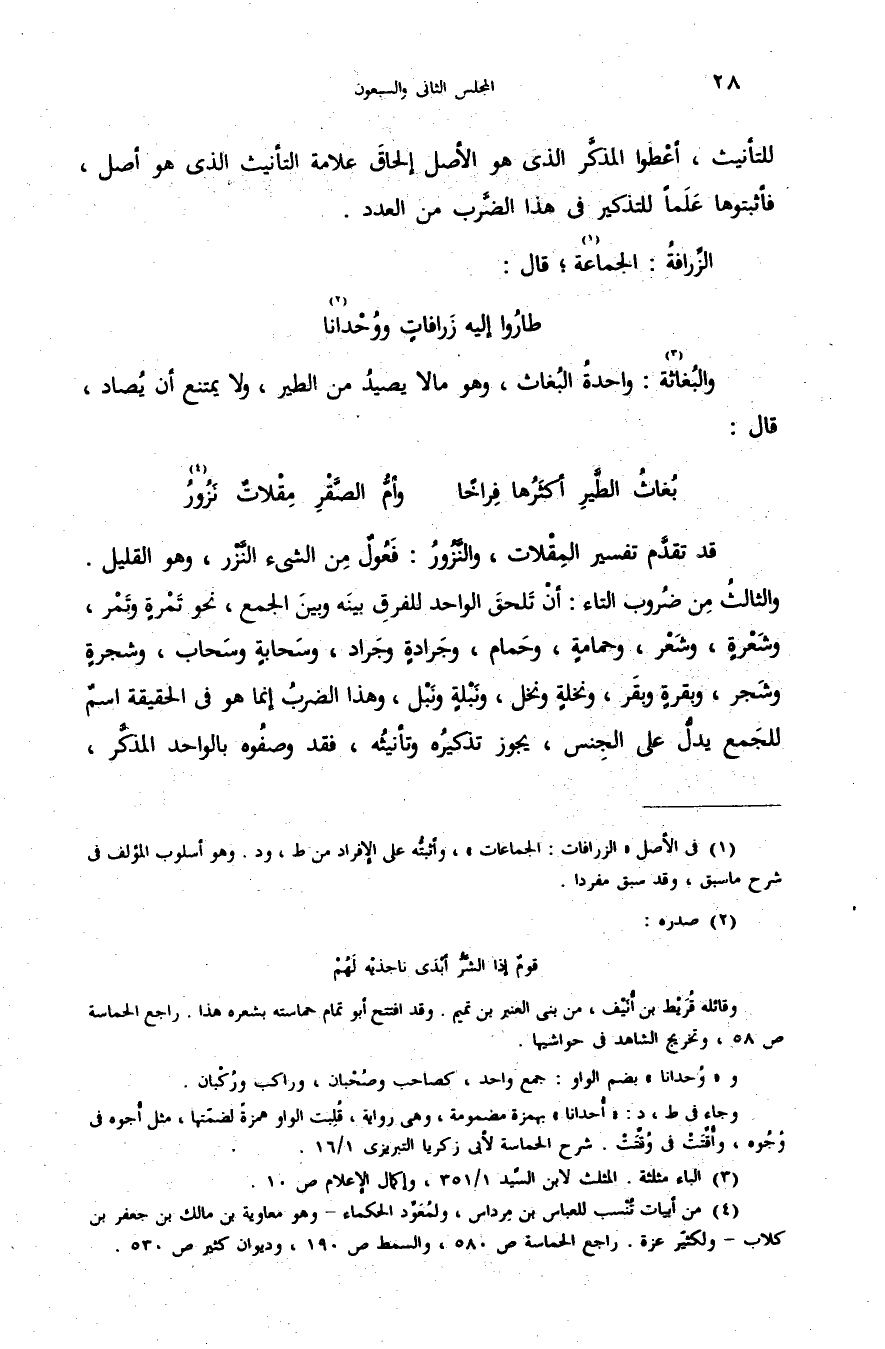 ٢٨ المجلس الثانى والسبعون
للتأنيث ، أعْطَوا المذكَّر الذى هو الأصل إلحاقَ علامة التأنيث الذى هو أصل ،
فأثبتوها عَلَماً للتذكير فى هذا الضَّرب من العدد .
الزَّرافةُ : الجماعة(١) ؛ قال :
طارُوا إليه زَرافاتٍ ووُحْدانا(٢)
والبُغاثة(٣) : واحدةُ البُغاث ، وهو مالا يصيدُ من الطير ، ولا يمتنع أن يُصاد ،
قال :
بُغاثُ الطَّيرِ أكثَرُها فِراخًا وأمُّ الصَّقْرِ مِقْلاتٌ نَزُورُ(٤)
قد تقدَّم تفسير المِقْلات ، والنَّزُورُ : فَعُولٌ مِن الشىء النَّزْر ، وهو القليل .
والثالثُ مِن ضُروب التاء : أنْ تَلحقَ الواحد للفرقِ بينَه وبينَ الجمع ، نحو تَمْرةٍ وتَمْر ،
وشَعْرةٍ ، وشَعْر ، وحمامةٍ ، وحَمام ، وجَرادةٍ وجَراد ، وسَحابةٍ وسَحاب ، وشجرةٍ
وشَجر ، وبقرةٍ وبقَر ، ونخلةٍ ونخل ، ونَبْلةٍ ونَبْل ، وهذا الضربُ إنما هو فى الحقيقة اسمٌ
للجَمع يدلُّ على الجِنس ، يجوز تذكيرُه وتأنيثُه ، فقد وصفُوه بالواحد المذكَّر ،
(١) فى الأصل « الزرافات : الجماعات » ، وأثبتُّه على الإفراد من ط ، ود . وهو أسلوب المؤلف فى
شرح ماسبق ، وقد سبق مفردا .
(٢) صدره :
قومٌ إذا الشرُّ أبْدَى ناجذيْه لَهُمْ
وقائله قُرَيْط بن أُنَيْف ، من بنى العنبر بن تميم . وقد افتتح أبو تمام حماسته بشعره هذا . راجع الحماسة
ص ٥٨ ، وتخريج الشاهد فى حواشيها .
و « وُحدانا » بضم الواو : جمع واحد ، كصاحب وصُحْبان ، وراكب ورُكْبان .
وجاء فى ط ، د : « أُحدانا » بهمزة مضمومة ، وهى رواية ، قُلِبت الواو همزةً لضمّتها ، مثل أُجوه فى
وُجُوه ، وأُقِّتَتْ فى وُقِّتَتْ . شرح الحماسة لأبى زكريا التبريزى ١٦/١ .
(٣) الباء مثلثة . المثلث لابن السِّيد ٣٥١/١ ، وإكمال الإعلام ص ١٠ .
(٤) من أبيات تُنْسب للعباس بن مِرداس ، ولمُعَوِّد الحكماء – وهو معاوية بن مالك بن جعفر بن
كلاب – ولكثيّر عزة . راجع الحماسة ص ٥٨٠ ، والسمط ص ١٩٠ ، وديوان كثير ص ٥٣٠ .